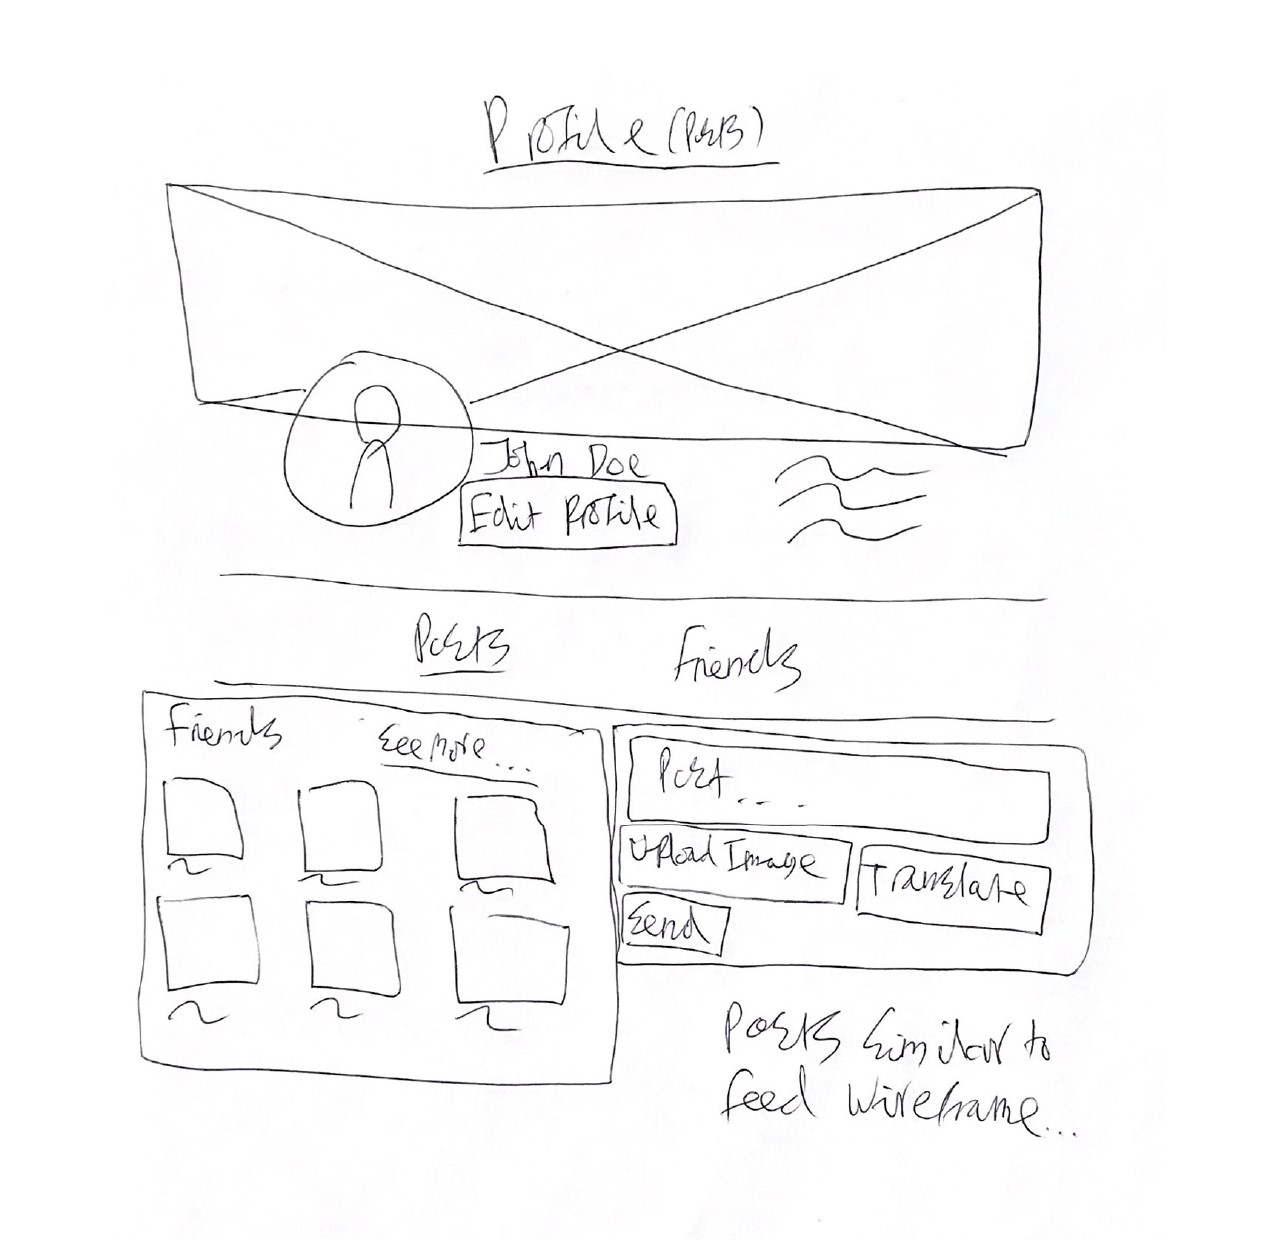 Profile
John Doe
Edit Profile
Posts Friends
Friends See more...
Post....
Upload Image Translate
Send
Posts Similar to
feed wireframe...